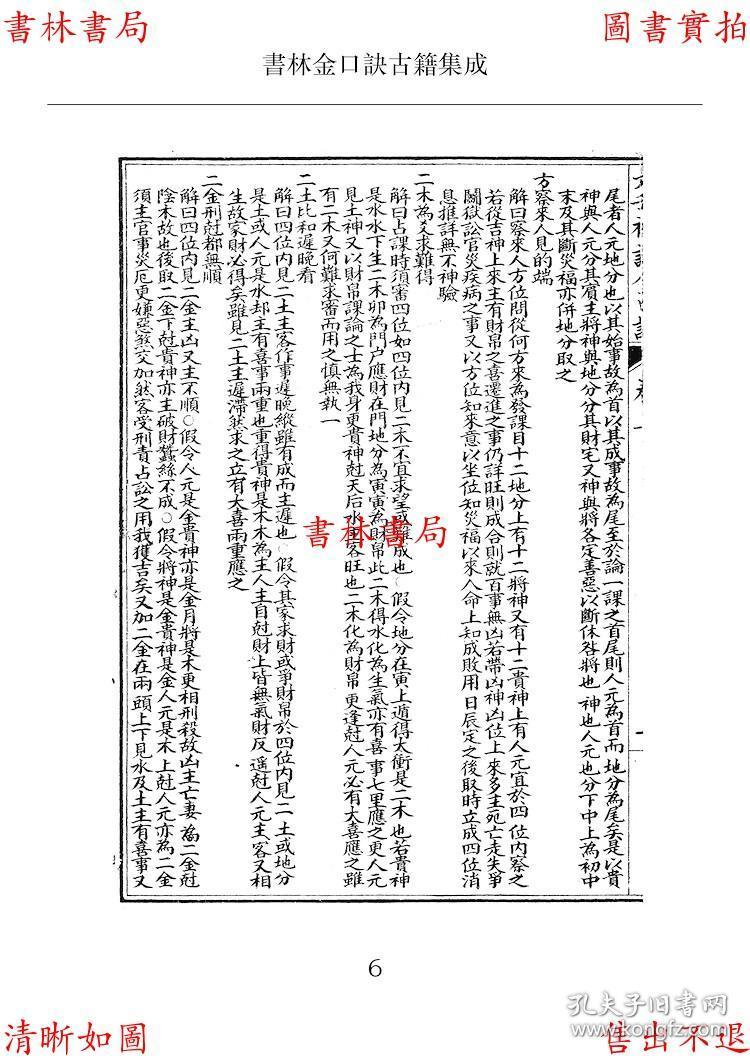 書林書局
圖書實拍
書林金口訣古籍集成
尾者人元地分也以其始事故為首以其成事故為尾至於論一課之首尾則人元為首而地分為尾矣是以貴
神與人元分其賓主將神與地分分其財宅又神與將各定善惡以斷休咎將也神也人元也分下中上為初中
末及其斷災福亦併地分取之
方察來人見的端
解曰察來人方位問從何方來為發課目十二地分上有十二將神又有十二貴神上有人元宜於四位內察之
若從吉神上來主有財帛之喜遷進之事仍詳旺則成合則就百事無凶若帶凶神凶位上來多主死亡走失爭
鬭獄訟官災疾病之事又以方位知來意以坐位知災福以來人命上知成敗用日辰定之後取時立成四位消
息推詳無不神驗
二木為爻求難得
解曰占課時須審四位如四位內見二木不宜求望或難成也○假令地分在寅上遁得太衝是二木也若貴神
是水水下生二木卯為門户應財在門地分為寅寅為財帛此二木得水化為生氣亦有喜事七里應之更人元
見土神又以財帛課論之土為我身更貴神尅天后水重客旺也二木化為財帛更逢尅人元必有大喜應之雖
有二木又何難求審而用之慎無執一
二土比和遲晚看
解曰四位內見二土主客作事遲晚縱雖有成而主遲也○假令其家求財或爭財帛於四位內見二土或地分
是土或人元是水却主有喜事兩重也重得貴神是木木為主人主自尅財上皆無氣財反遥尅人元主客又相
生故家財必得矣雖見二土主遲滯然求之立有大喜兩重應之
二金刑尅都無順
解曰四位內見二金主凶又主不順○假令人元是金貴神亦是金月將是木更相刑殺故凶主亡妻為二金尅
陰木故也後取二金下尅貴神亦主破財蠶絲不成○假令將神是金貴神是金人元是木上尅人元亦為二金
須主官事災厄更嫌惡煞交加然客受刑責占訟之用我獲吉矣又加二金在兩頭上下見水及土主有喜事又
書林書局
6
清晰如圖
售出不退
孔夫子旧书网
www.kongfz.com